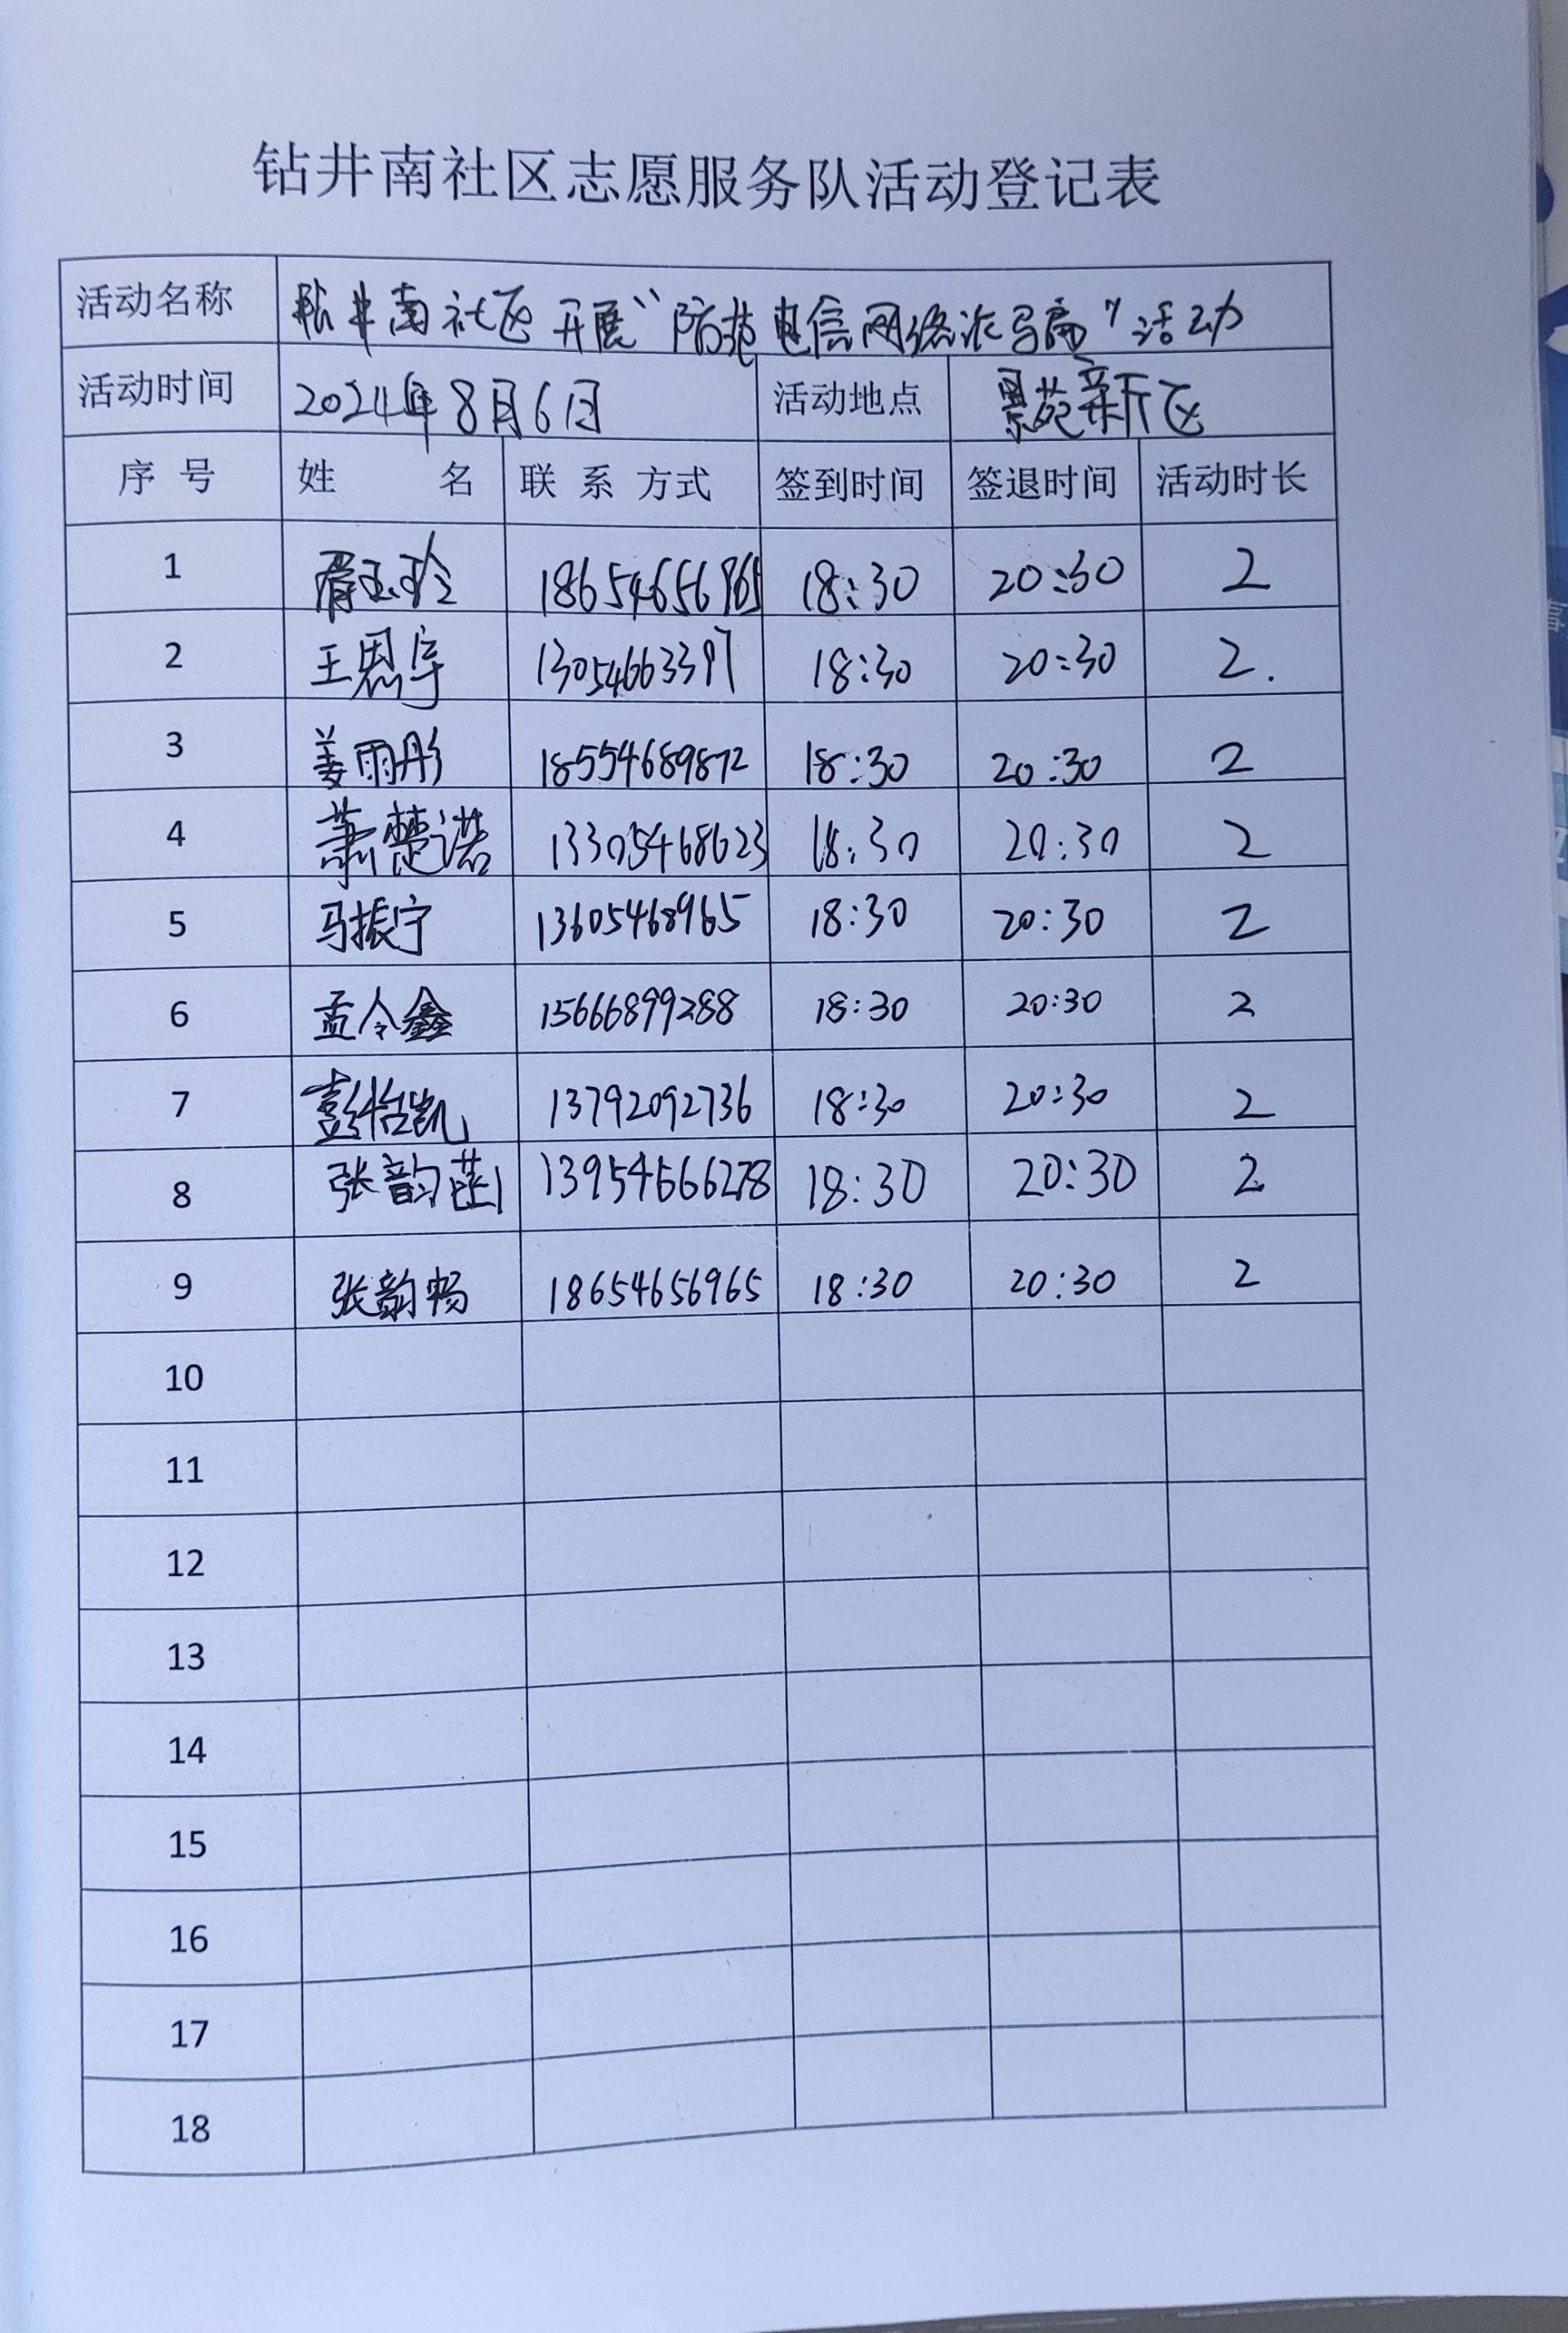 钻井南社区志愿服务队活动登记表
活动名称 钻井南社区开展“防范电信网络诈骗”活动
活动时间 2024年8月6日 活动地点 景苑新区
序号 姓名 联系方式 签到时间 签退时间 活动时长
1 胥玉玲 18654656965 18:30 20:30 2
2 王恩宇 13054663397 18:30 20:30 2.
3 姜雨彤 18554689872 18:30 20:30 2
4 萧楚诺 13305468623 18:30 20:30 2
5 马振宁 13605468965 18:30 20:30 2
6 孟令鑫 15666899288 18:30 20:30 2
7 彭怡凯 13792092736 18:30 20:30 2
8 张韵菡 13954666278 18:30 20:30 2
9 张韵畅 18654656965 18:30 20:30 2
10
11
12
13
14
15
16
17
18